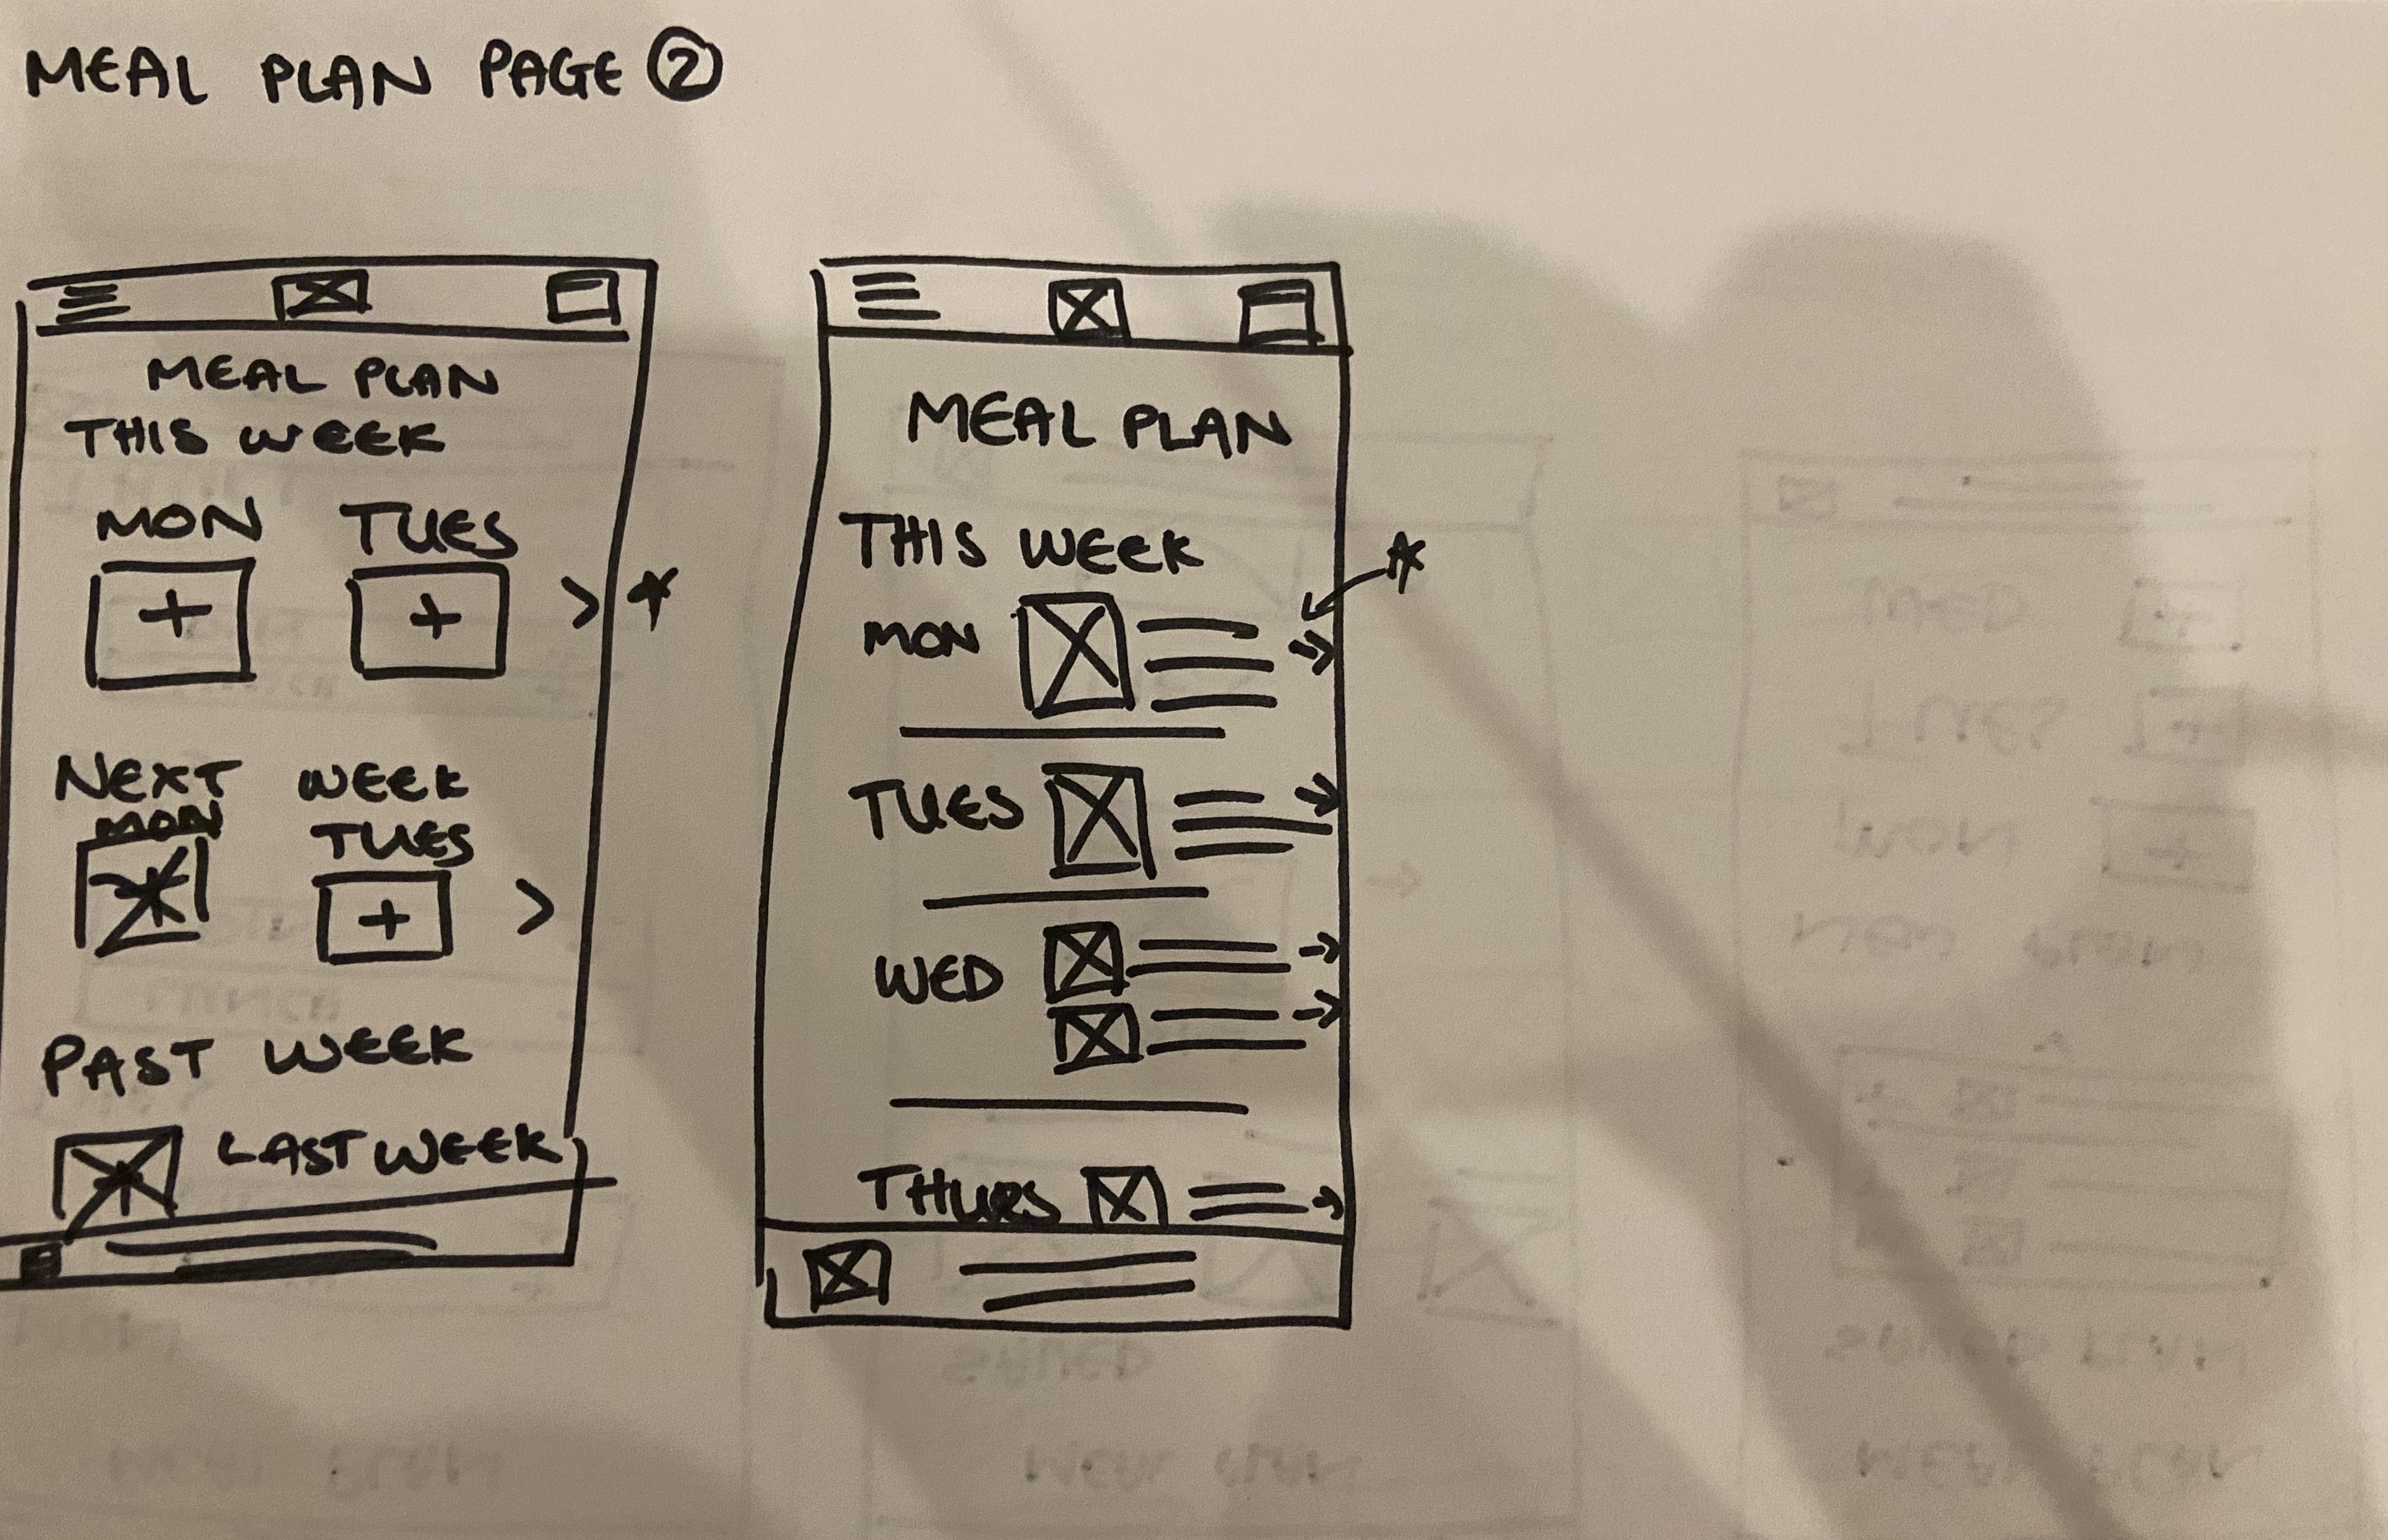 MEAL PLAN PAGE ②
MEAL PLAN
THIS WEEK
MON TUES
+ +
>
NEXT WEEK
MON TUES
+
>
PAST WEEK
LAST WEEK
MEAL PLAN
THIS WEEK
MON
TUES
WED
THURS